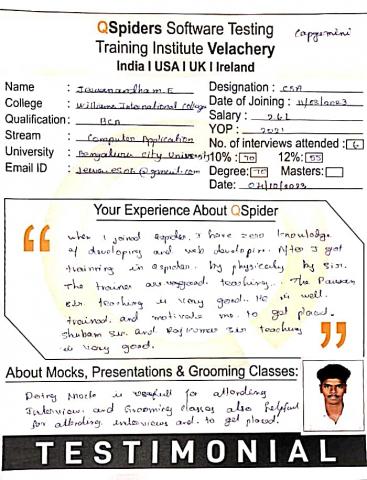 QSpiders Software Testing
Capgemini
Training Institute Velachery
India I USA I UK I Ireland
Name : Jeevanandham.E
Designation : CSA
College : Williams International College
Date of Joining :
Qualification: BCA
Salary :
Stream : Computer Application
YOP : 2021
No. of interviews attended : 6
University : Bengaluru City University
10% : 70 12%: 55
Email ID :
Degree: 70 Masters:
Date: 04/10/2023
Your Experience About QSpider
when I joined qspider. I have zero knowledge
of developing and web developing. After I got
training in qspider. by physically by sir.
The trainer are good teaching. The Pawan
sir. teaching is very good. He is well
trained. and motivate me. to get placed.
shubam sir. and Raj kumar sir teaching
is very good.
About Mocks, Presentations & Grooming Classes:
Doing Mock is usefull for attending
Interview. and Grooming classes also helpful
for attending interviews and. to get placed.
TESTIMONIAL